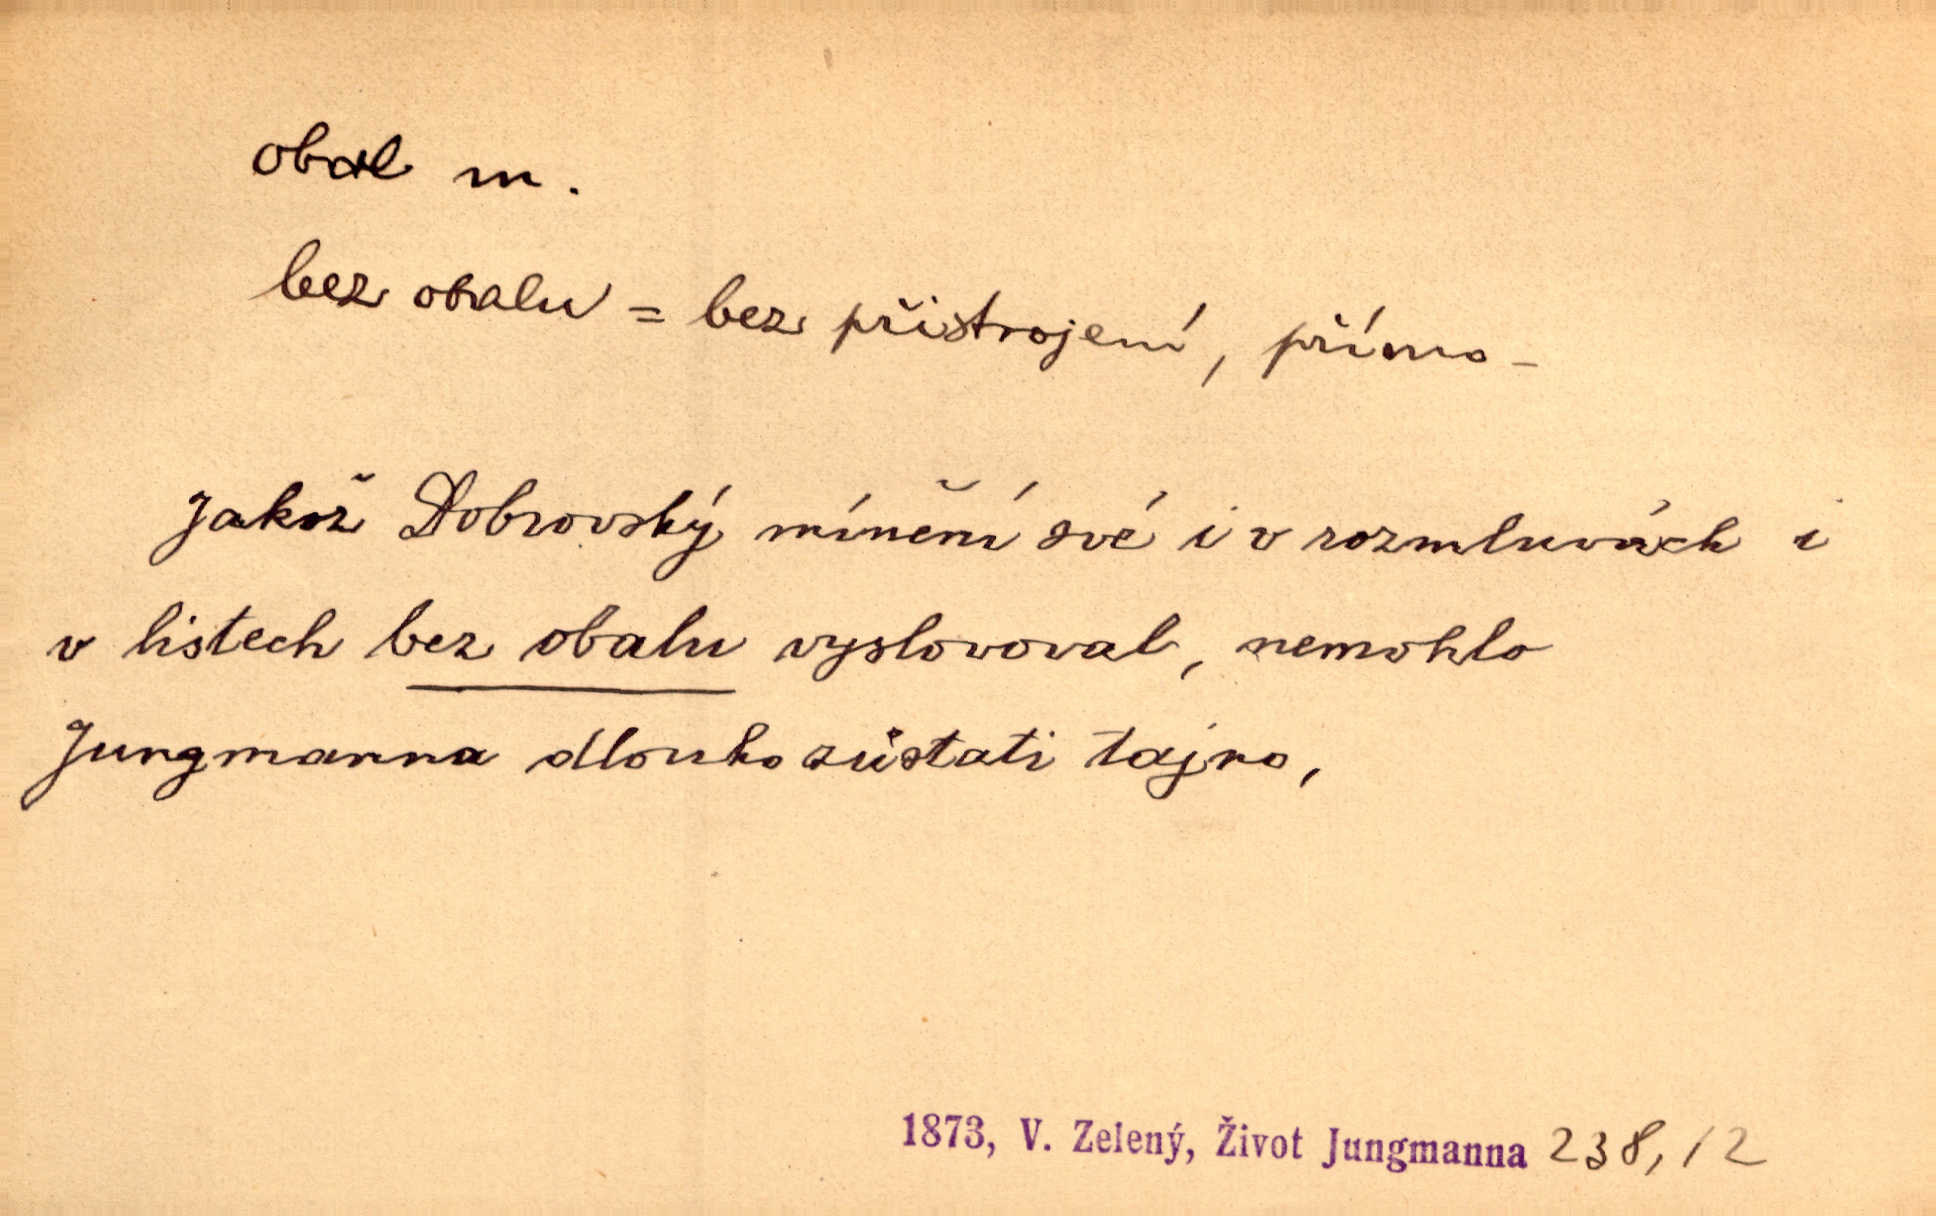 obal m.
bez obalu = bez přistrojení, přímo -
Jakož Dobrovský mínění své i v rozmluvách i
v listech bez obalu vyslovoval, nemohlo
Jungmanna dlouho zůstati tajno,
1873, V. Zelený, Život Jungmanna 238, 12